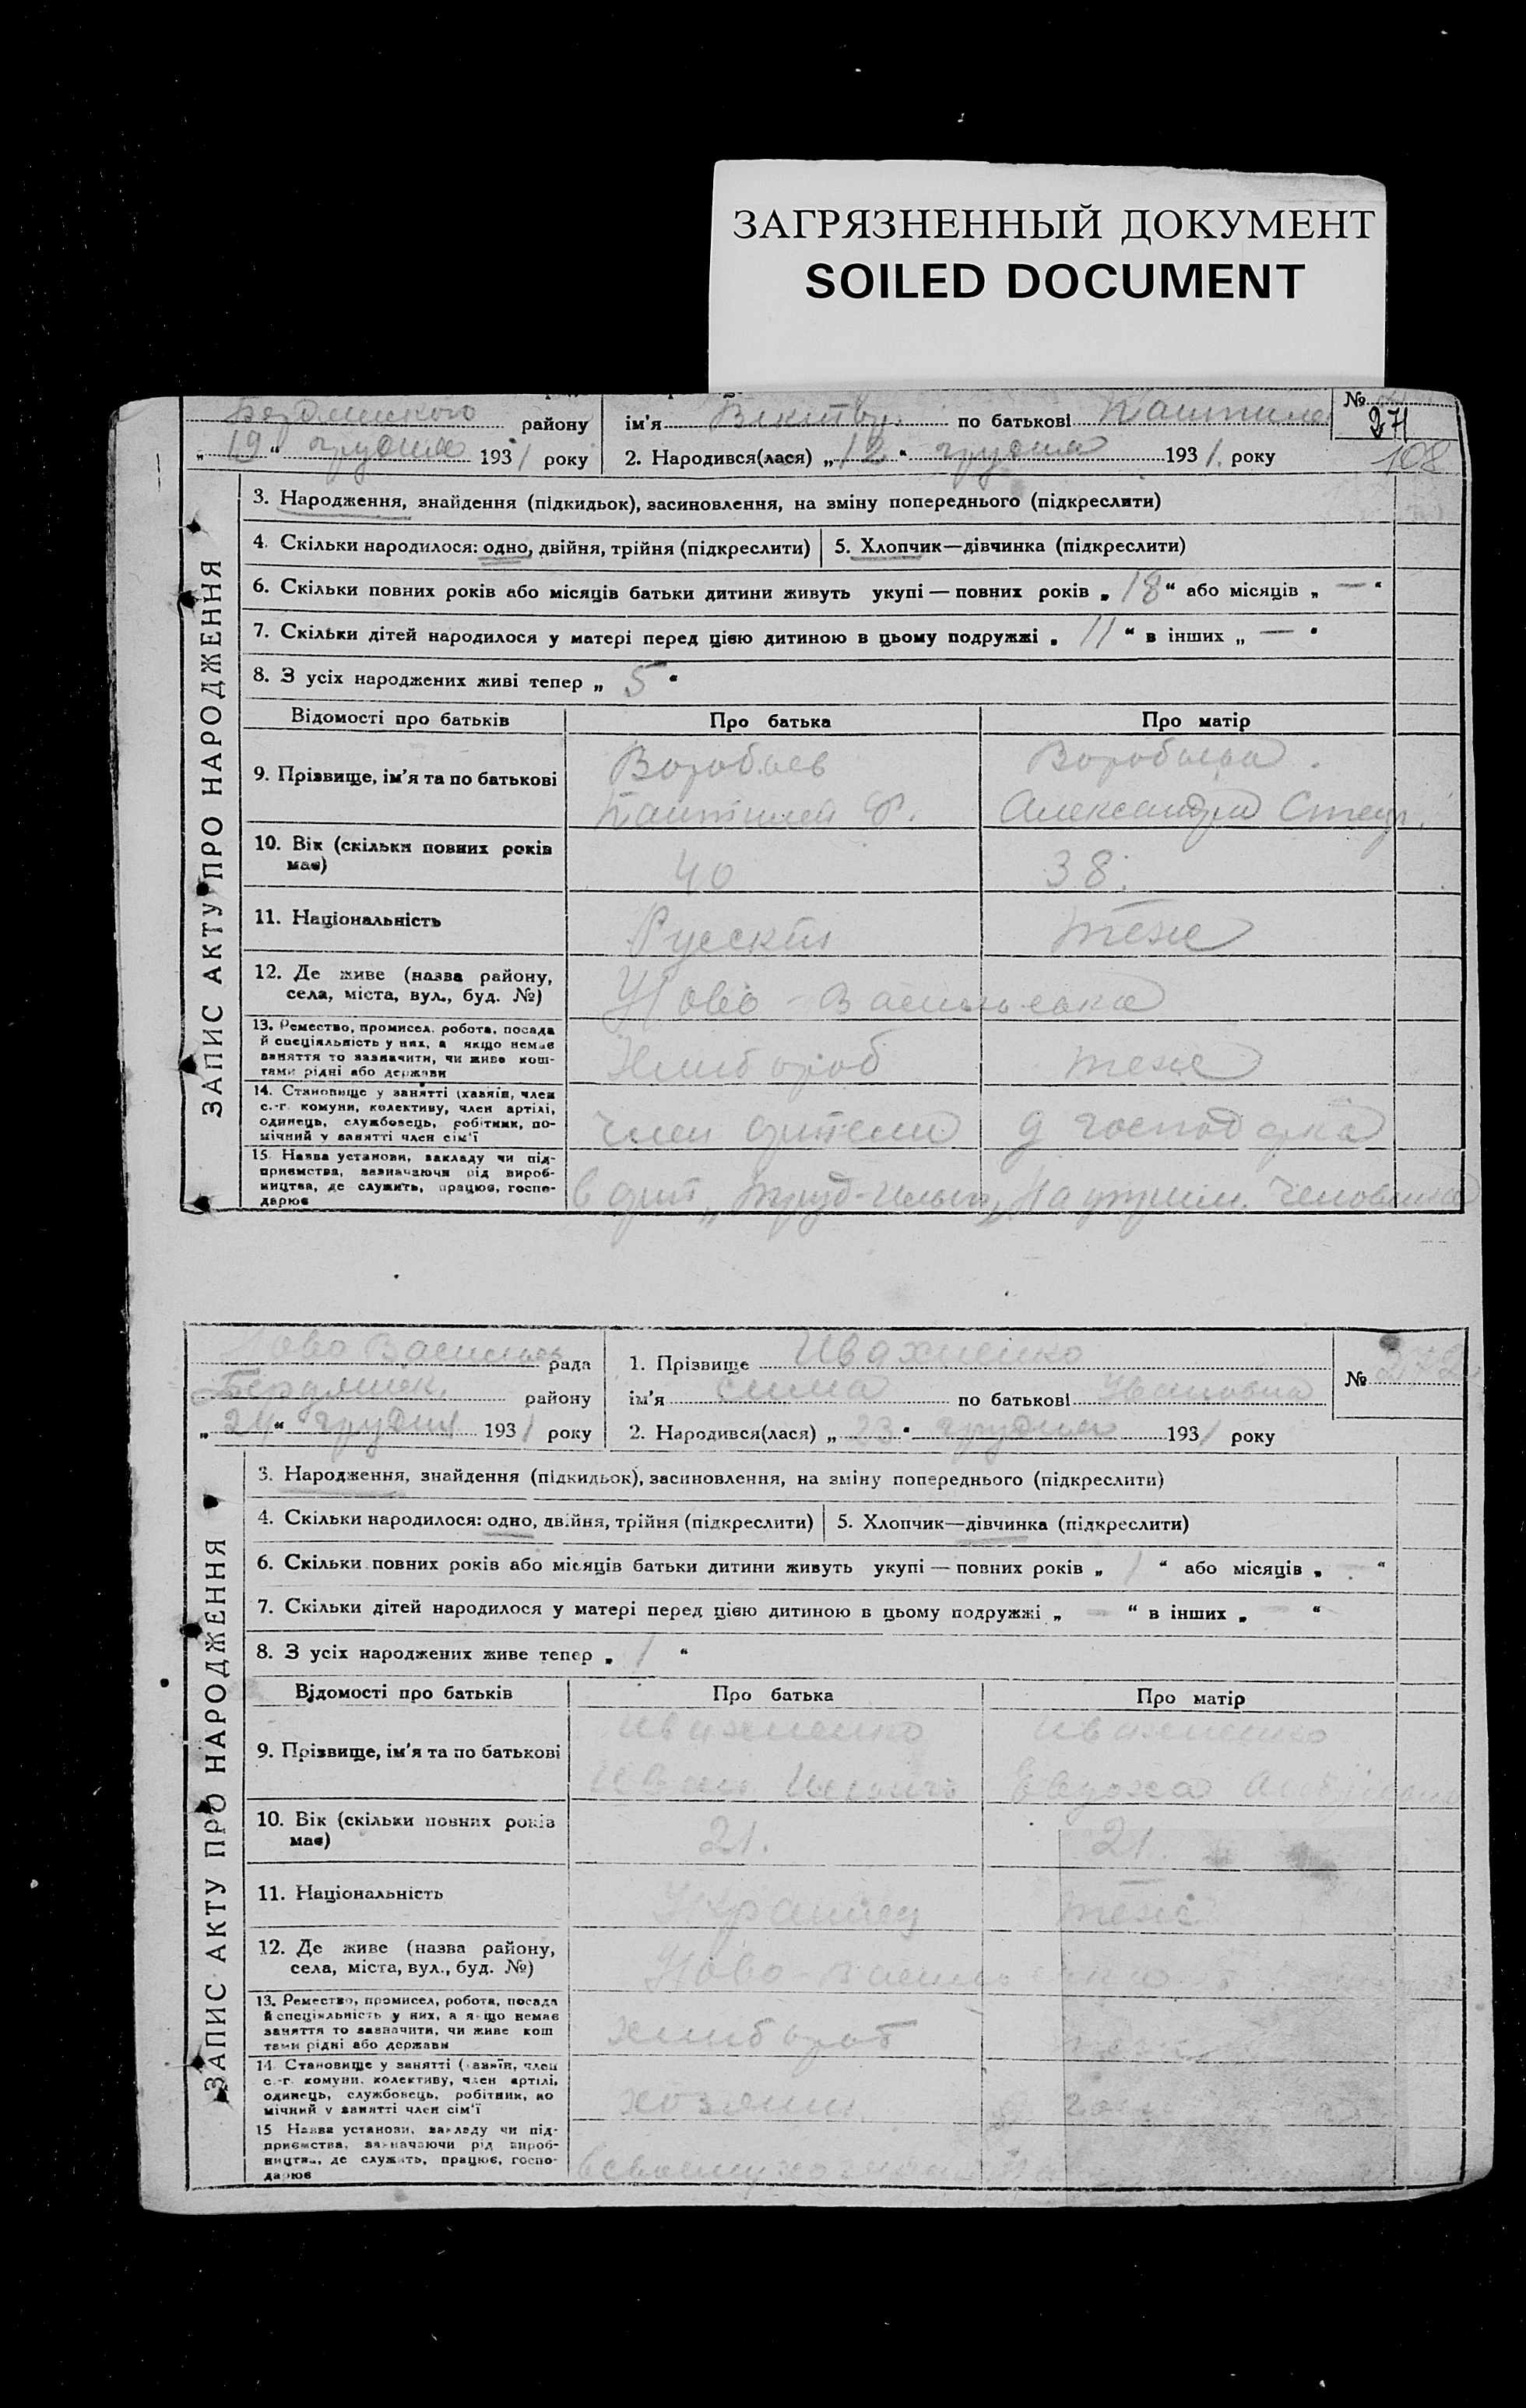 ЗАГРЯЗНЕННЫЙ ДОКУМЕНТ
SOILED DOCUMENT
району
„19“ грудня 1931 року
ім'я Виктор по батькові
2. Народився(лася) „12“ грудня 1931. року
№
271
108
ЗАПИС АКТУ ПРО НАРОДЖЕННЯ
3. Народження, знайдення (підкидьок), засиновлення, на зміну попереднього (підкреслити)
4. Скільки народилося: одно, двійня, трійня (підкреслити)
5. Хлопчик—дівчинка (підкреслити)
6. Скільки повних років або місяців батьки дитини живуть укупі — повних років „18“ або місяців „—“
7. Скільки дітей народилося у матері перед цією дитиною в цьому подружжі „11“ в інших „—“
8. З усіх народжених живі тепер „5“
Відомості про батьків Про батька Про матір
9. Прізвище, ім'я та по батькові
Воробьев Воробьева.
Ф. Александра Степ.
10. Вік (скільки повних років має)
40 38.
11. Національність
Русский тоже
12. Де живе (назва району,
села, міста, вул., буд. №)
Ново-Васильевка
13. Ремество, промисел, робота, посада
й спеціяльність у них, а якщо немає
заняття то зазначити, чи живе кош-
тами рідні або держави
Хлибороб тоже
14. Становище у занятті (хазяїн, член
с.-г. комуни, колективу, член артілі,
одинець, службовець, робітник, по-
мічний у занятті член сім'ї
член артели д господарка
15. Назва установи, закладу чи під-
приємства, зазначаючи рід вироб-
ництва, де служить, працює, госпо-
дарює
в арт „Труд- на утрим. человика
рада
району
„24“ грудня 1931 року
1. Прізвище Ивахненко
ім'я по батькові Ивановна
2. Народився(лася) „23“ грудня 1931 року
№ 272
ЗАПИС АКТУ ПРО НАРОДЖЕННЯ
3. Народження, знайдення (підкидьок), засиновлення, на зміну попереднього (підкреслити)
4. Скільки народилося: одно, двійня, трійня (підкреслити)
5. Хлопчик—дівчинка (підкреслити)
6. Скільки повних років або місяців батьки дитини живуть укупі — повних років „1“ або місяців „—“
7. Скільки дітей народилося у матері перед цією дитиною в цьому подружжі „—“ в інших „—“
8. З усіх народжених живе тепер „1“
Відомості про батьків Про батька Про матір
9. Прізвище, ім'я та по батькові
Ивахненко Ивахненко
Иван
10. Вік (скільки повних років має)
21. 21.
11. Національність
Украинец тоже
12. Де живе (назва району,
села, міста, вул., буд. №)
Ново-Васильевка
13. Ремество, промисел, робота, посада
й спеціяльність у них, а якщо немає
заняття то зазначити, чи живе кош
тами рідні або держави
хлибороб
14. Становище у занятті (хазяїн, член
с.-г. комуни, колективу, член артілі,
одинець, службовець, робітник, по
мічний у занятті член сім'ї
хозяин
15 Назва установи, закладу чи під-
приємства, зазначаючи рід вироб-
ництва, де служить, працює, госпо-
дарює